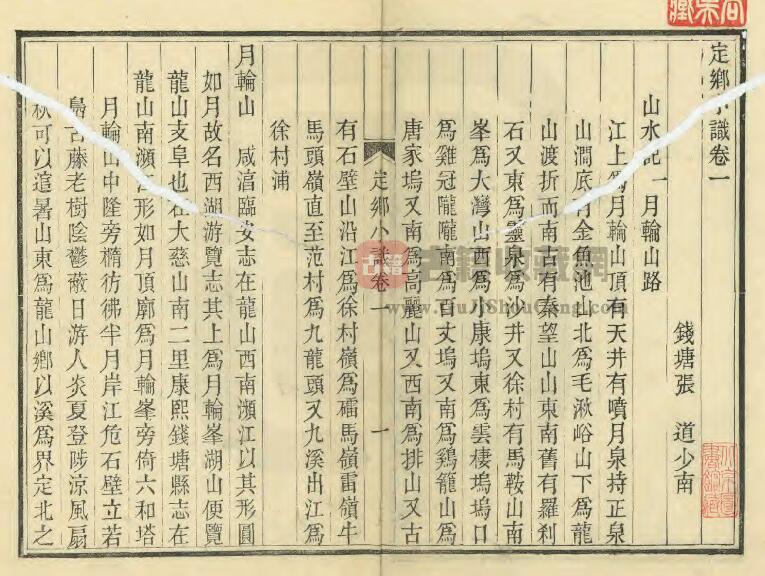 定鄉小識卷一
錢塘張 道少南
山水記一 月輪山路
江上爲月輪山頂有天井有噴月泉持正泉
山澗底有金魚池山北爲毛湫峪山下爲龍
山渡折而南古有秦望山山東南舊有羅刹
石又東爲靈泉爲沙井又徐村有馬鞍山南
峯爲大灣山西爲小康塢東爲雲棲塢塢口
爲雞冠隴隴南爲百丈塢又南爲鷄籠山爲
唐家塢又南爲高麗山又西南爲排山又古
定鄉小識卷一 一
有石壁山沿江爲徐村嶺爲礌馬嶺雷嶺牛
馬頭嶺直至范村爲九龍頭又九溪出江爲
徐村浦
月輪山 咸淳臨安志在龍山西南瀕江以其形圓
如月故名西湖游覽志其上爲月輪峯湖山便覽
龍山支阜也在大慈山南二里康熙錢塘縣志在
龍山南瀕江形如月頂廓爲月輪峯旁倚六和塔
月輪山中隆旁橢彷彿半月岸江危石壁立若
古藤老樹陰鬱蔽日游人炎夏登陟涼風扇
秋可以逭暑山東爲龍山鄉以溪爲界定北之
古籍收藏網
www.GuJiShouCang.com